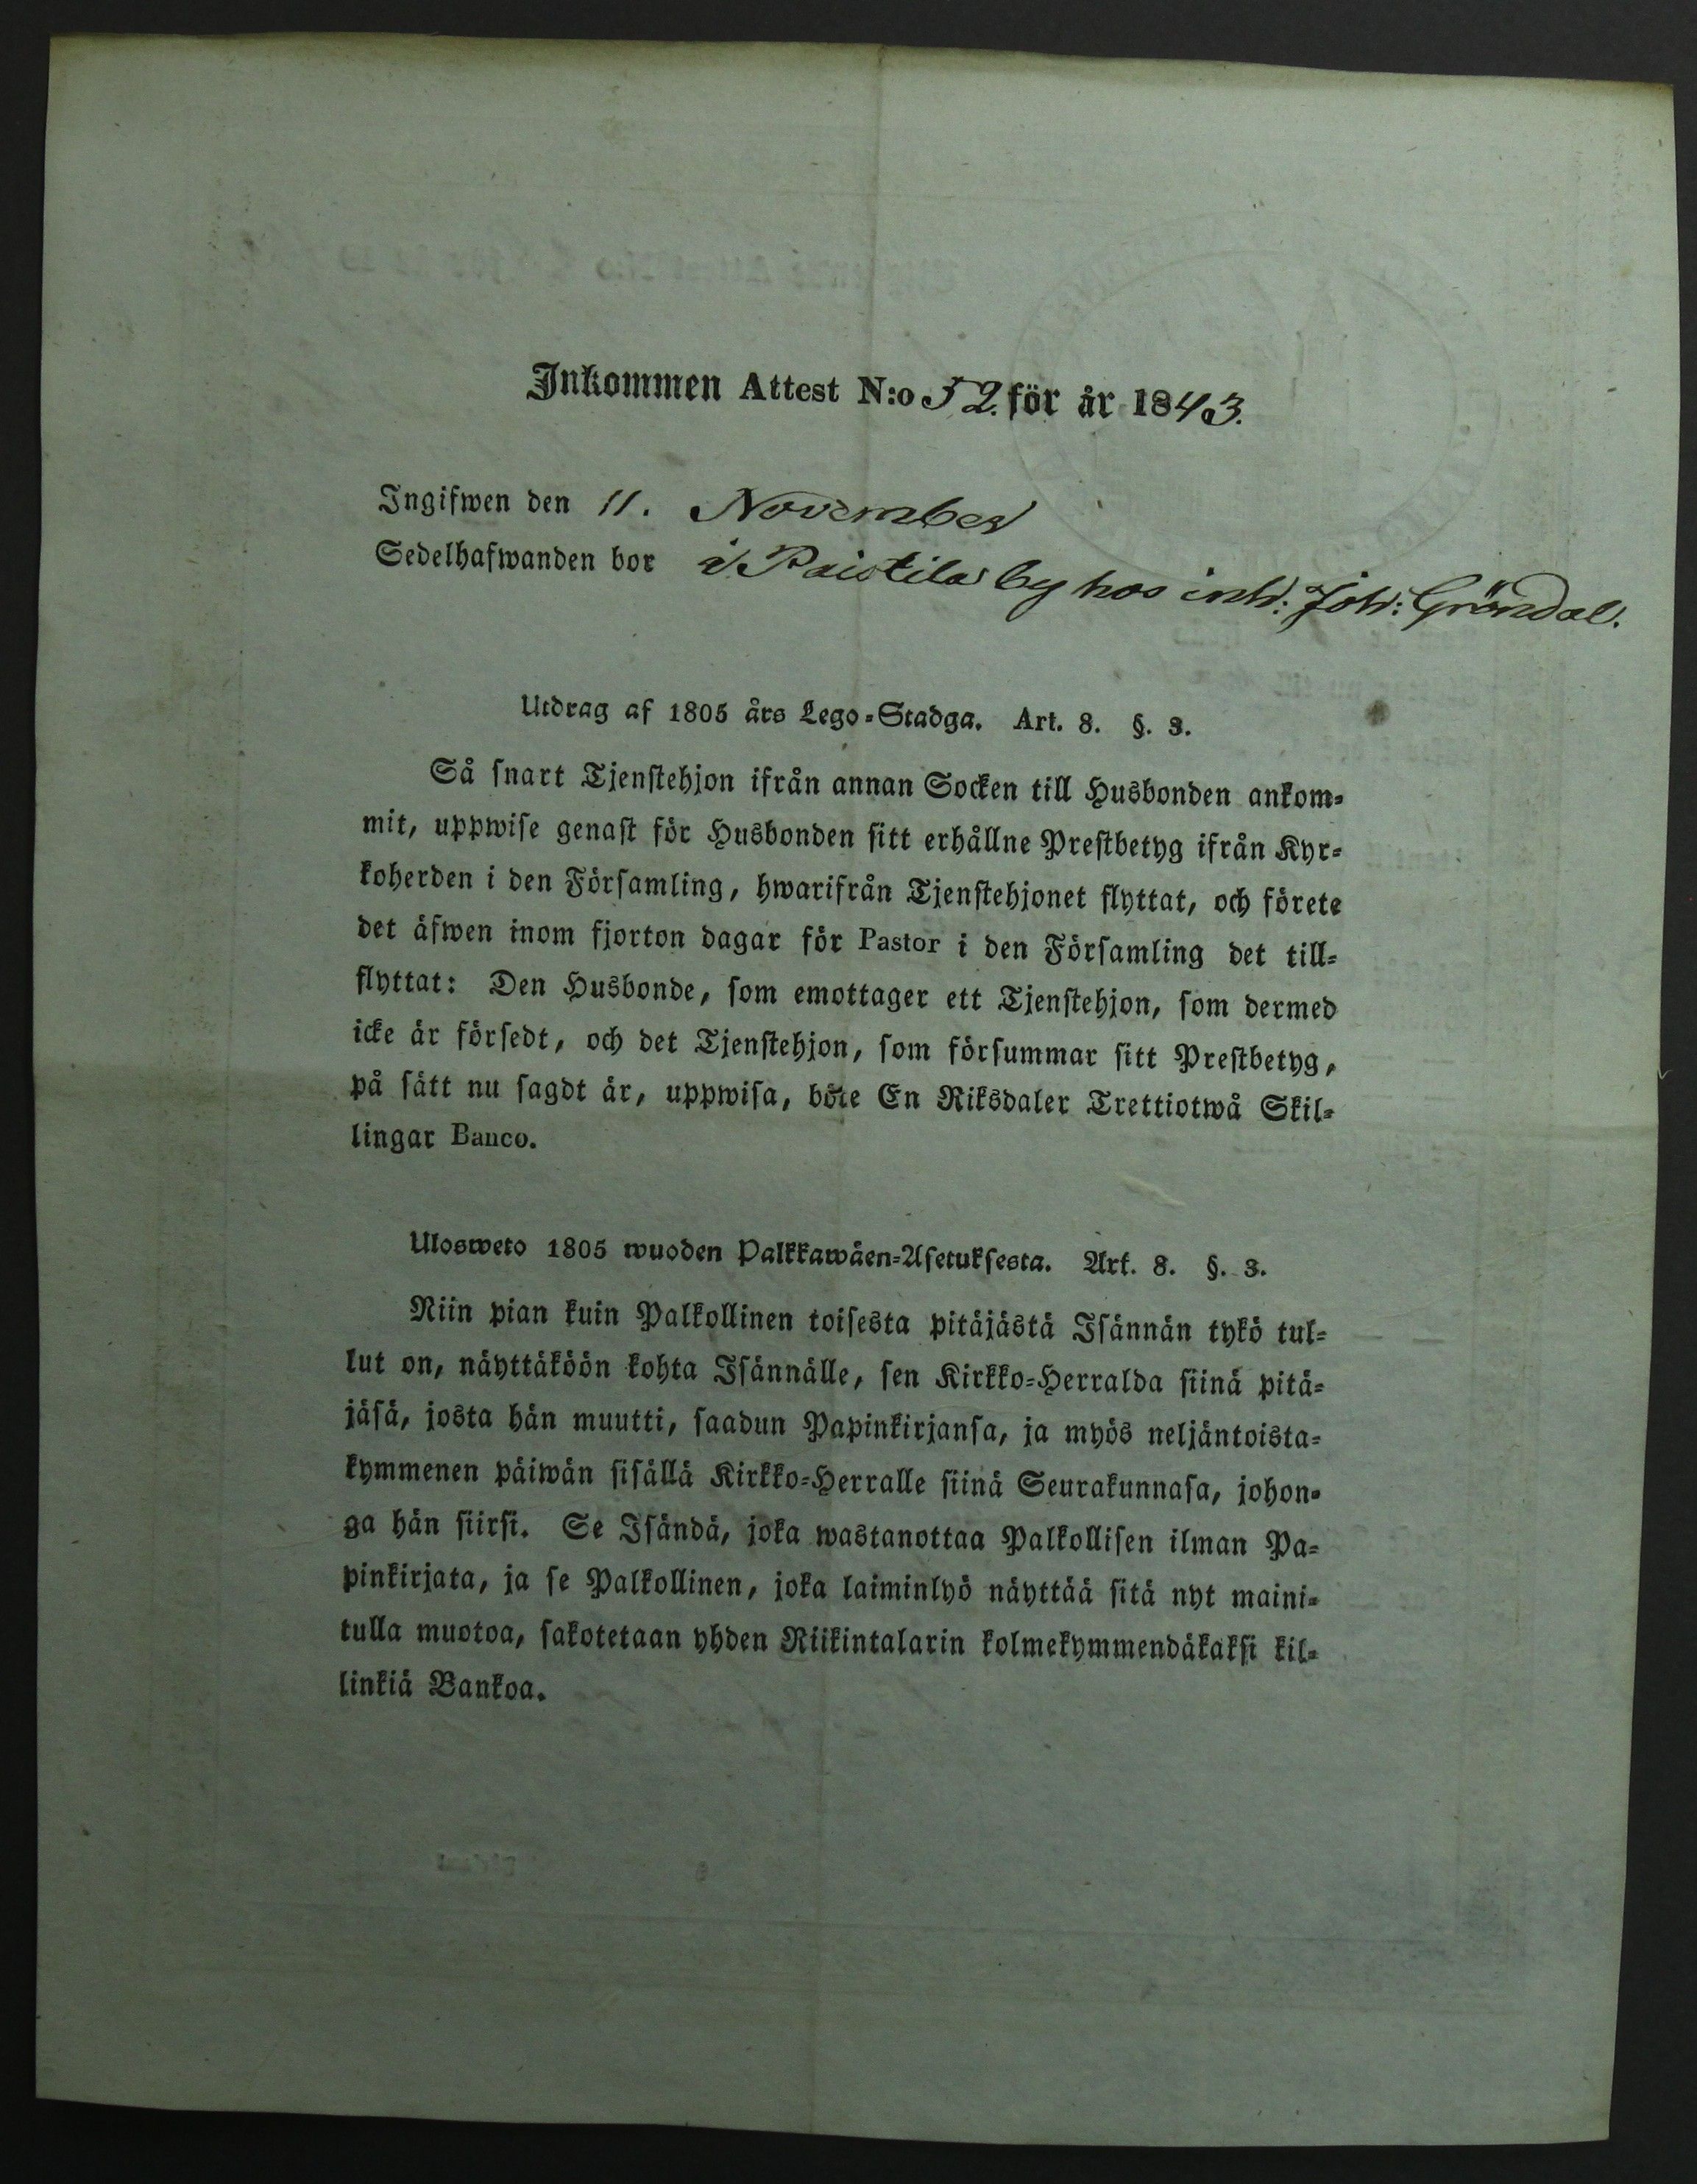 Inkommen Attest N:o 52. för år 1843.
Ingifwen den 11. November
Sedelhafwanden bor i Paistila by hos inh: Joh: Gröndal.
Utdrag af 1805 års Lego-Stadga. Art. 8. §. 3.
Så snart Tjenstehjon ifrån annan Socken till Husbonden ankom-
mit, uppwise genast för Husbonden sitt erhållne Prestbetyg ifrån Kyr-
koherden i den Församling, hwarifrån Tjenstehjonet flyttat, och förete
det äfwen inom fjorton dagar för Pastor i den Församling det till-
flyttat: Den Husbonde, som emottager ett Tjenstehjon, som dermed
icke är försedt, och det Tjenstehjon, som försummar sitt Prestbetyg,
på sätt nu sagdt är, uppwisa, böte En Riksdaler Trettiotwå Skil-
lingar Banco.
Ulosweto 1805 wuoden Palkkawäen-Asetuksesta. Art. 8. §. 3.
Niin pian kuin Palkollinen toisesta pitäjästä Isännän tykö tul-
lut on, näyttäköön kohta Isännälle, sen Kirkko-Herralda siinä pitä-
jäsä, josta hän muutti, saadun Papinkirjansa, ja myös neljäntoista-
kymmenen päiwän sisällä Kirkko-Herralle siinä Seurakunnasa, johon-
ga hän siirsi. Se Isändä, joka wastanottaa Palkollisen ilman Pa-
pinkirjata, ja se Palkollinen, joka laiminlyö näyttää sitä nyt maini-
tulla muotoa, sakotetaan yhden Riikintalarin kolmekymmendäkaksi kil-
linkiä Bankoa.